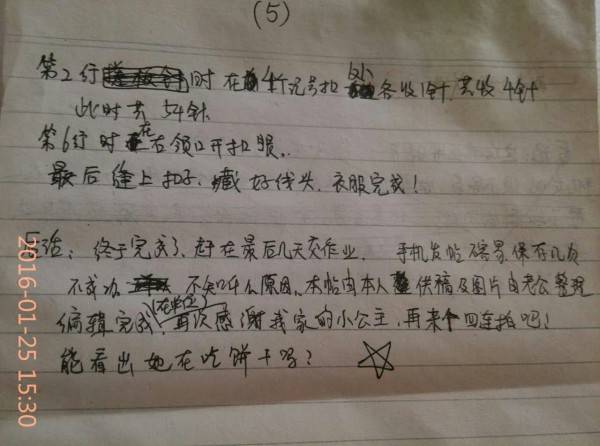 (5)
第2行时在4个记号扣处各收1针,共收4针
此时共54针.
第6行时在右领口开扣眼.
最后缝上扣子、藏好线头、衣服完成!
后话:终于完成了,赶在最后几天交作业. 手机发帖
不成功 不知什么原因,本帖由本人供稿及图片由老公整理
编辑完成,再次感谢我家的小公主,再来个四连拍吧!
能看出她在吃饼干吗?
2016-01-25 15:30